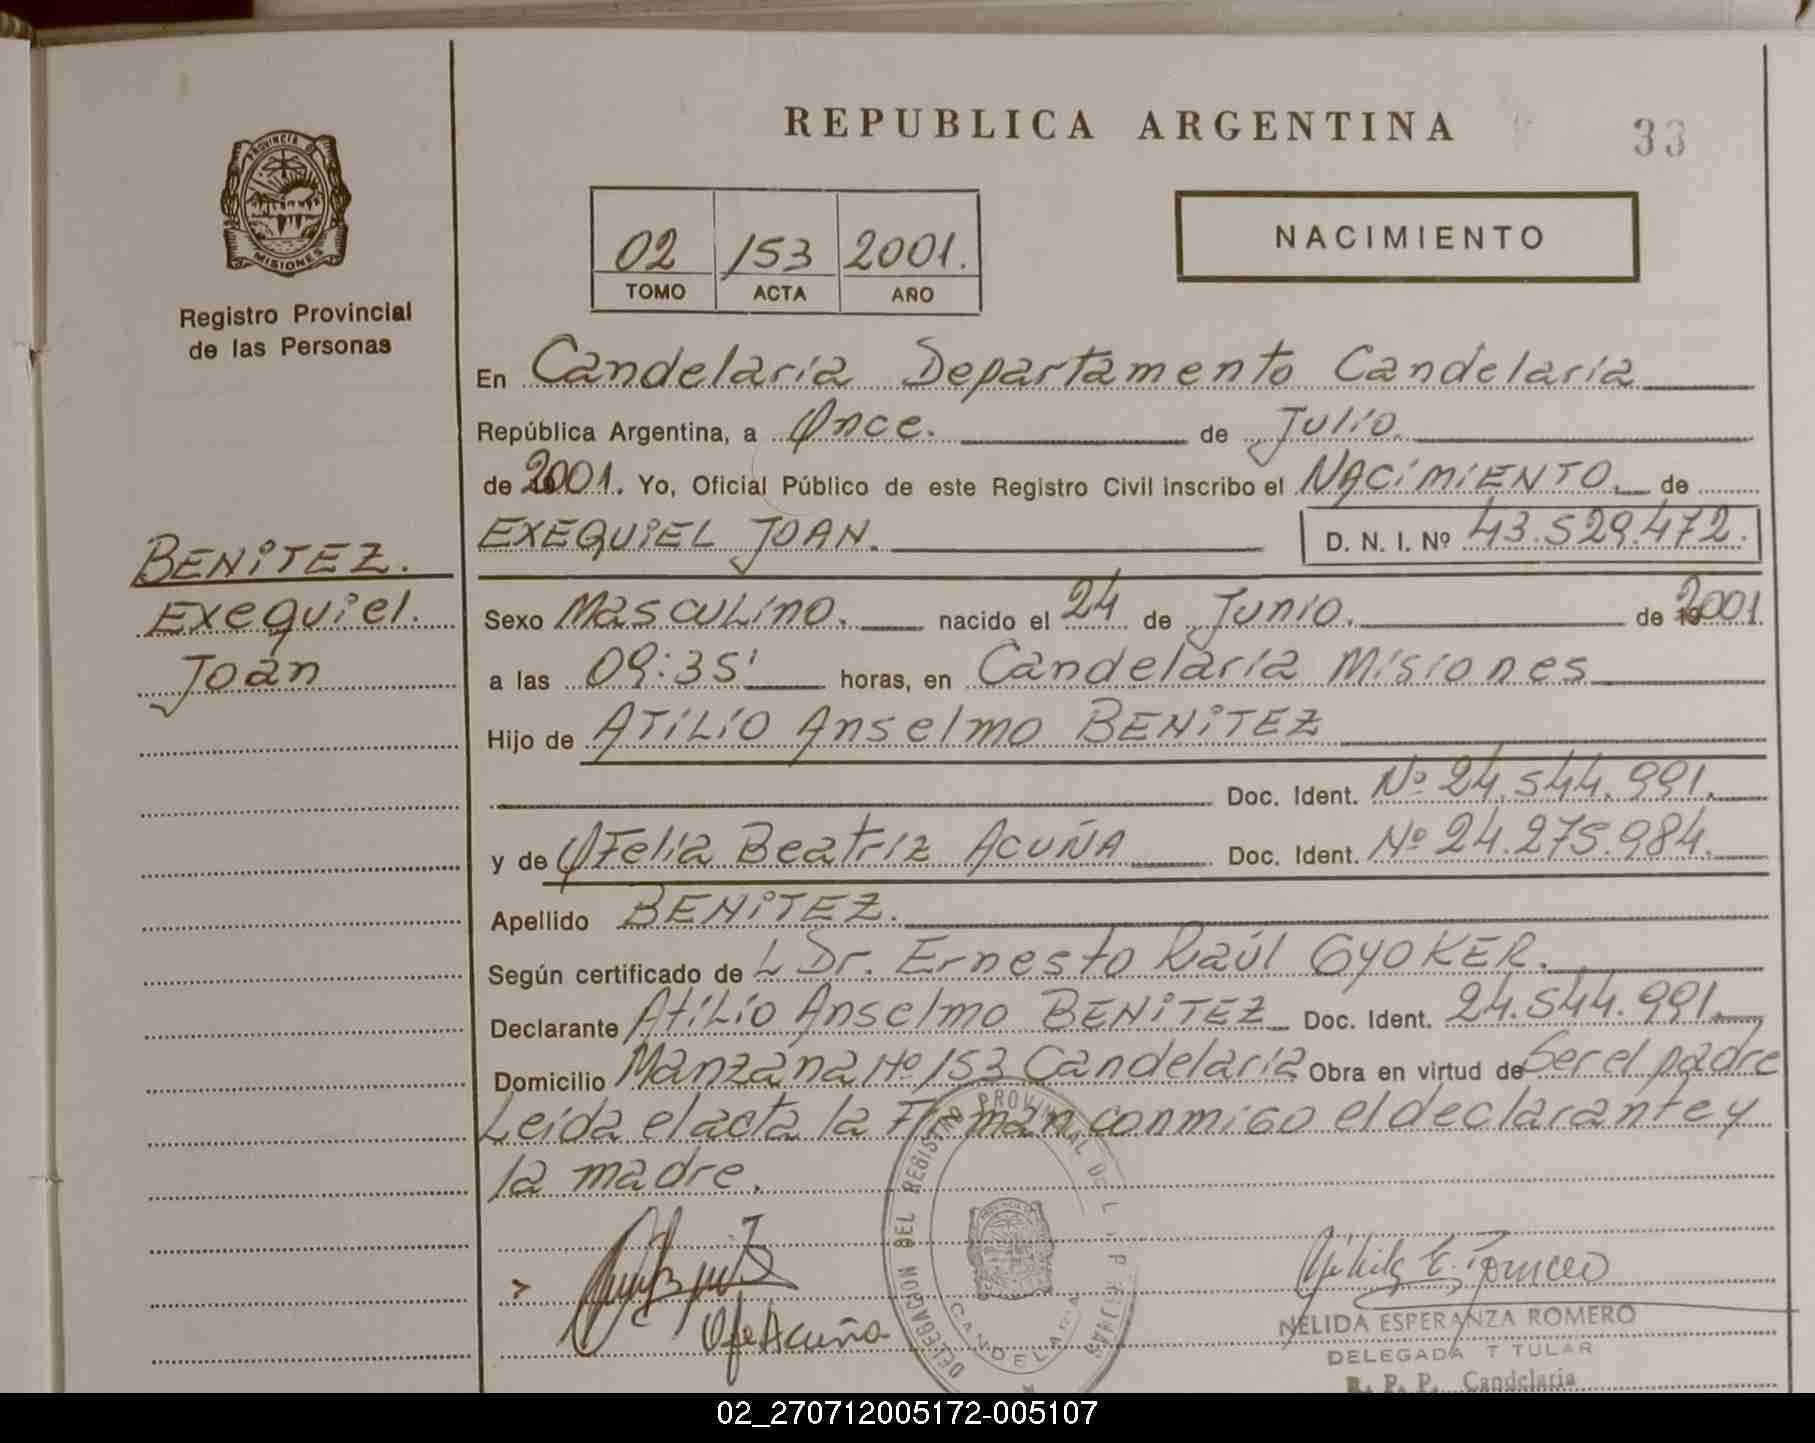 REPUBLICA ARGENTINA
33
PROVINCIA DE
MISIONES
Registro Provincial
de las Personas
02 153 2001.
TOMO ACTA AÑO
NACIMIENTO
En Candelaria Departamento Candelaria
República Argentina, a Once. de Julio.
de 2001. Yo, Oficial Público de este Registro Civil inscribo el NACIMIENTO. de
EXEQUIEL JOAN. D. N. I. Nº 43.529.472.
BENITEZ.
Exequiel.
Joan
Sexo Masculino. nacido el 24 de Junio. de 2001.
a las 09:35' horas, en Candelaria Misiones
Hijo de Atilio Anselmo BENITEZ
Doc. Ident. Nº 24.544.991.
y de Ofelia Beatriz ACUÑA Doc. Ident. Nº 24.275.984.
Apellido BENITEZ.
Según certificado de L Dr. Ernesto Raúl GYOKER.
Declarante Atilio Anselmo BENITEZ Doc. Ident. 24.544.991.
Domicilio Manzana Nº 153 Candelaria Obra en virtud de Ser el padre
Leida el acta la Firman conmigo el declarante y
la madre.
DELEGACION DEL REGISTRO PROVINCIAL DE L
CANDELARIA
Ofe Acuña
NELIDA ESPERANZA ROMERO
DELEGADA T TULAR
R. P. P. Candelaria
02_270712005172-005107